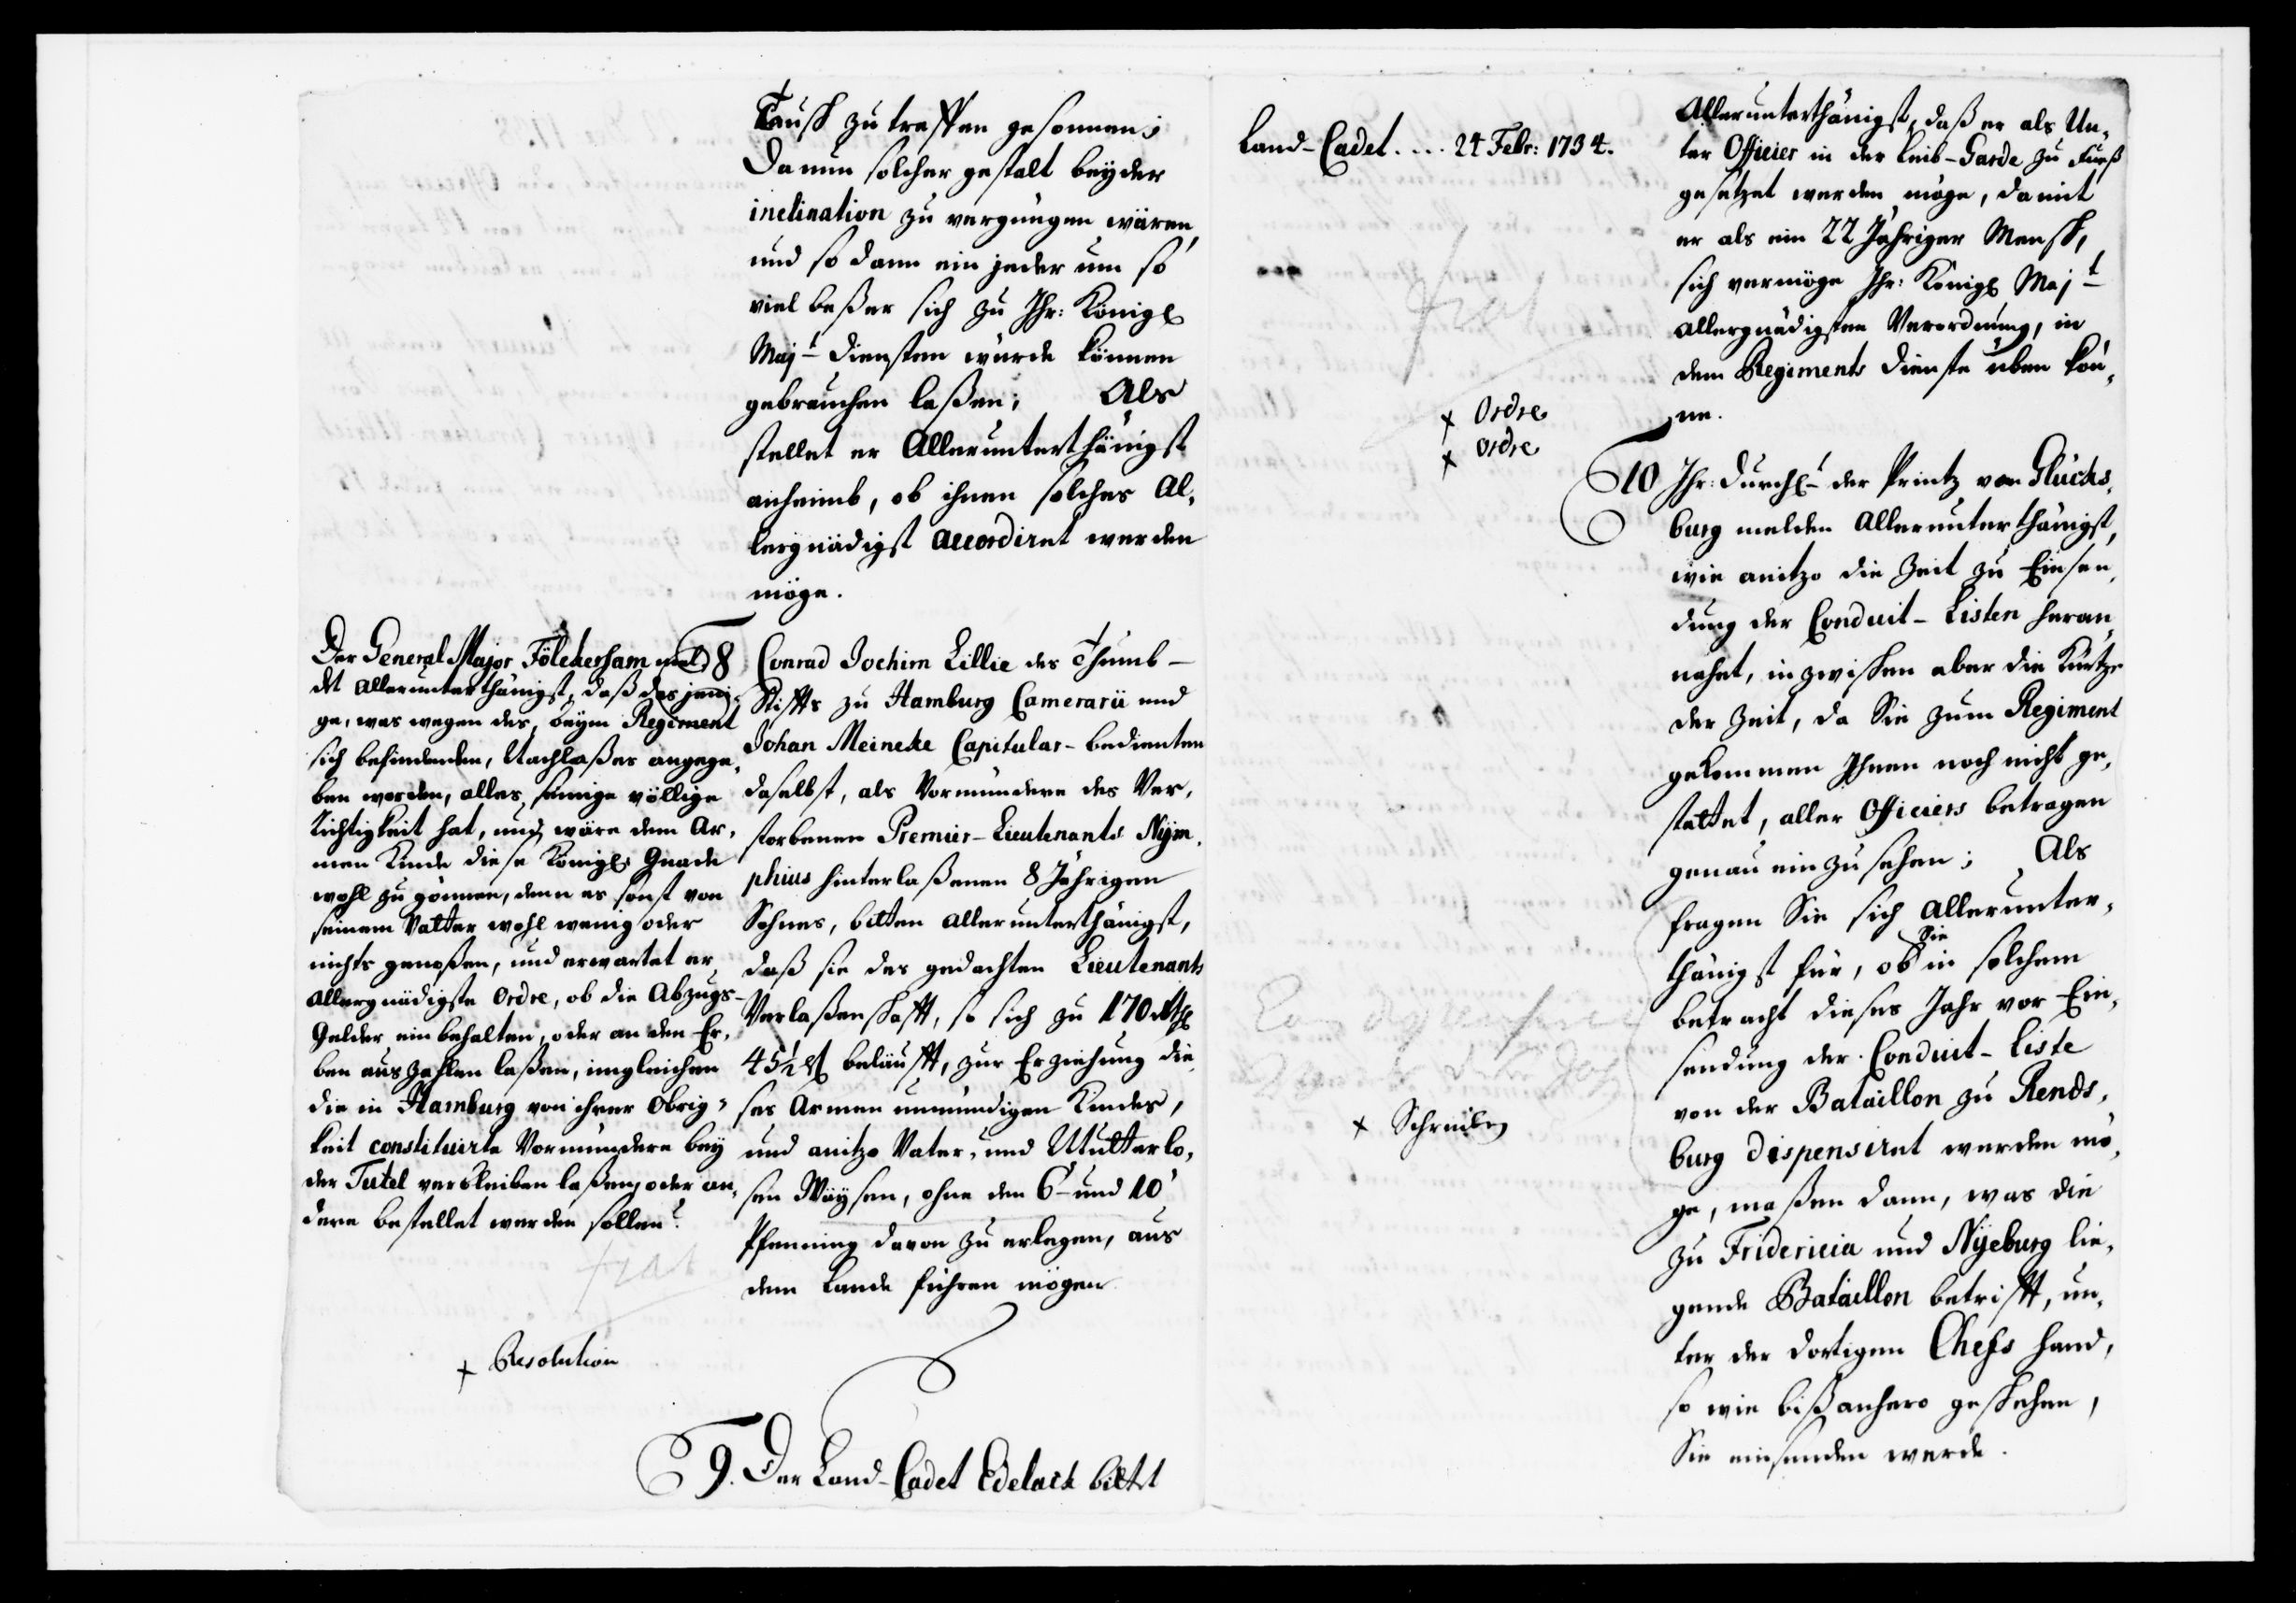 Tausch zu treffen gesonnen;
Da nun solcher gestalt beyder
inclination zu vergnügen wären,
und so dann ein jeder um so
viel beßer sich zu Ihr: Königl
Majt diensten würde können
gebrauchen laßen; Als
stellet er Allerunterthänigst
anheimb, ob ihnen solches Al-
lergnädigst accordiret werden
möge.
Der General Major Fölckersham mel-
det allerunterthänigst, daß dasjeni-
ge, was wegen des, beym Regiment
sich befindenden, Nachlaßes angege-
ben worden, alles seinige völlige
Richtigkeit hat, und wäre dem Ar-
men Kinde diese Königl: Gnade
wohl zu gönnen, denn es sonst von
seinem Vatter wohl wenig oder
nichts genoßen, und erwartet er
allergnädigste Ordre, ob die Abzugs-
Gelder einbehalten, oder an den Er-
ben auszahlen laßen, imgleichen
die in Hamburg von ihrer Obrig-
keit constituirte Vormündere bey
der Tutel verbleiben laßen, oder an-
dere bestellet werden sollen?
frat
+ Resolution
8 Conrad Jochim Lillie des Thumb-
Stiffts zu Hamburg Camerarii und
Johan Meineke Capitular-bedienten
daselbst, als Vormündere des Ver-
storbenen Premier-Lieutenants Nym-
phius hinterlaßenen 8 Jährigen
Sohnes, bitten allerunterthänigst,
daß sie des gedachten Lieutenants
Verlaßenschafft, so sich zu 170 Rthl
45½ ß beläufft, zur Erziehung die-
ses Armen unmündigen Kindes,
und anitzo Vater- und Mutterlo-
sen Waysen, ohne den 6 und 10
Pfenning davon zu erlegen, aus
dem Lande führen mögen
9. Der Land-Cadet Edelack bittet
Land-Cadet.... 24 Febr: 1734.
frat
+ Ordre
+ ordre
+ Schreiben
Allerunterthänigst, daß er als Un-
ter Officier in der Leib-Garde zu Fueß
gesetzet werden möge, damit
er als ein 22 Jähriger Mensch,
sich vermöge Ihr: Königl Majt
allergnädigsten Verordnung, in
dem Regiments dienste üben kön-
ne.
10 Ihr: Durchlt der Printz von Glücks-
burg melden Allerunterthänigst,
wie anitzo die Zeit zu Einsen-
dung der Conduit-Listen heran
nahet, inzwischen aber die Kürtze
der Zeit, da Sie zum Regiment
gekommen Ihnen noch nicht ge-
stattet, aller Officiers betragen
genau einzusehen; Als
fragen Sie sich Allerunter-
thänigst für, ob Sie in solchem
betracht dieses Jahr vor Ein-
sendung der Conduit-Liste
von der Bataillon zu Rends-
burg dispensiret werden mö-
ge, maßen dann, was die
zu Fridericia und Nyeburg lie-
gende Bataillon betrifft, un-
ter der dortigen Chefs hand,
so wie bißanhero geschehen,
Sie einsenden werde.